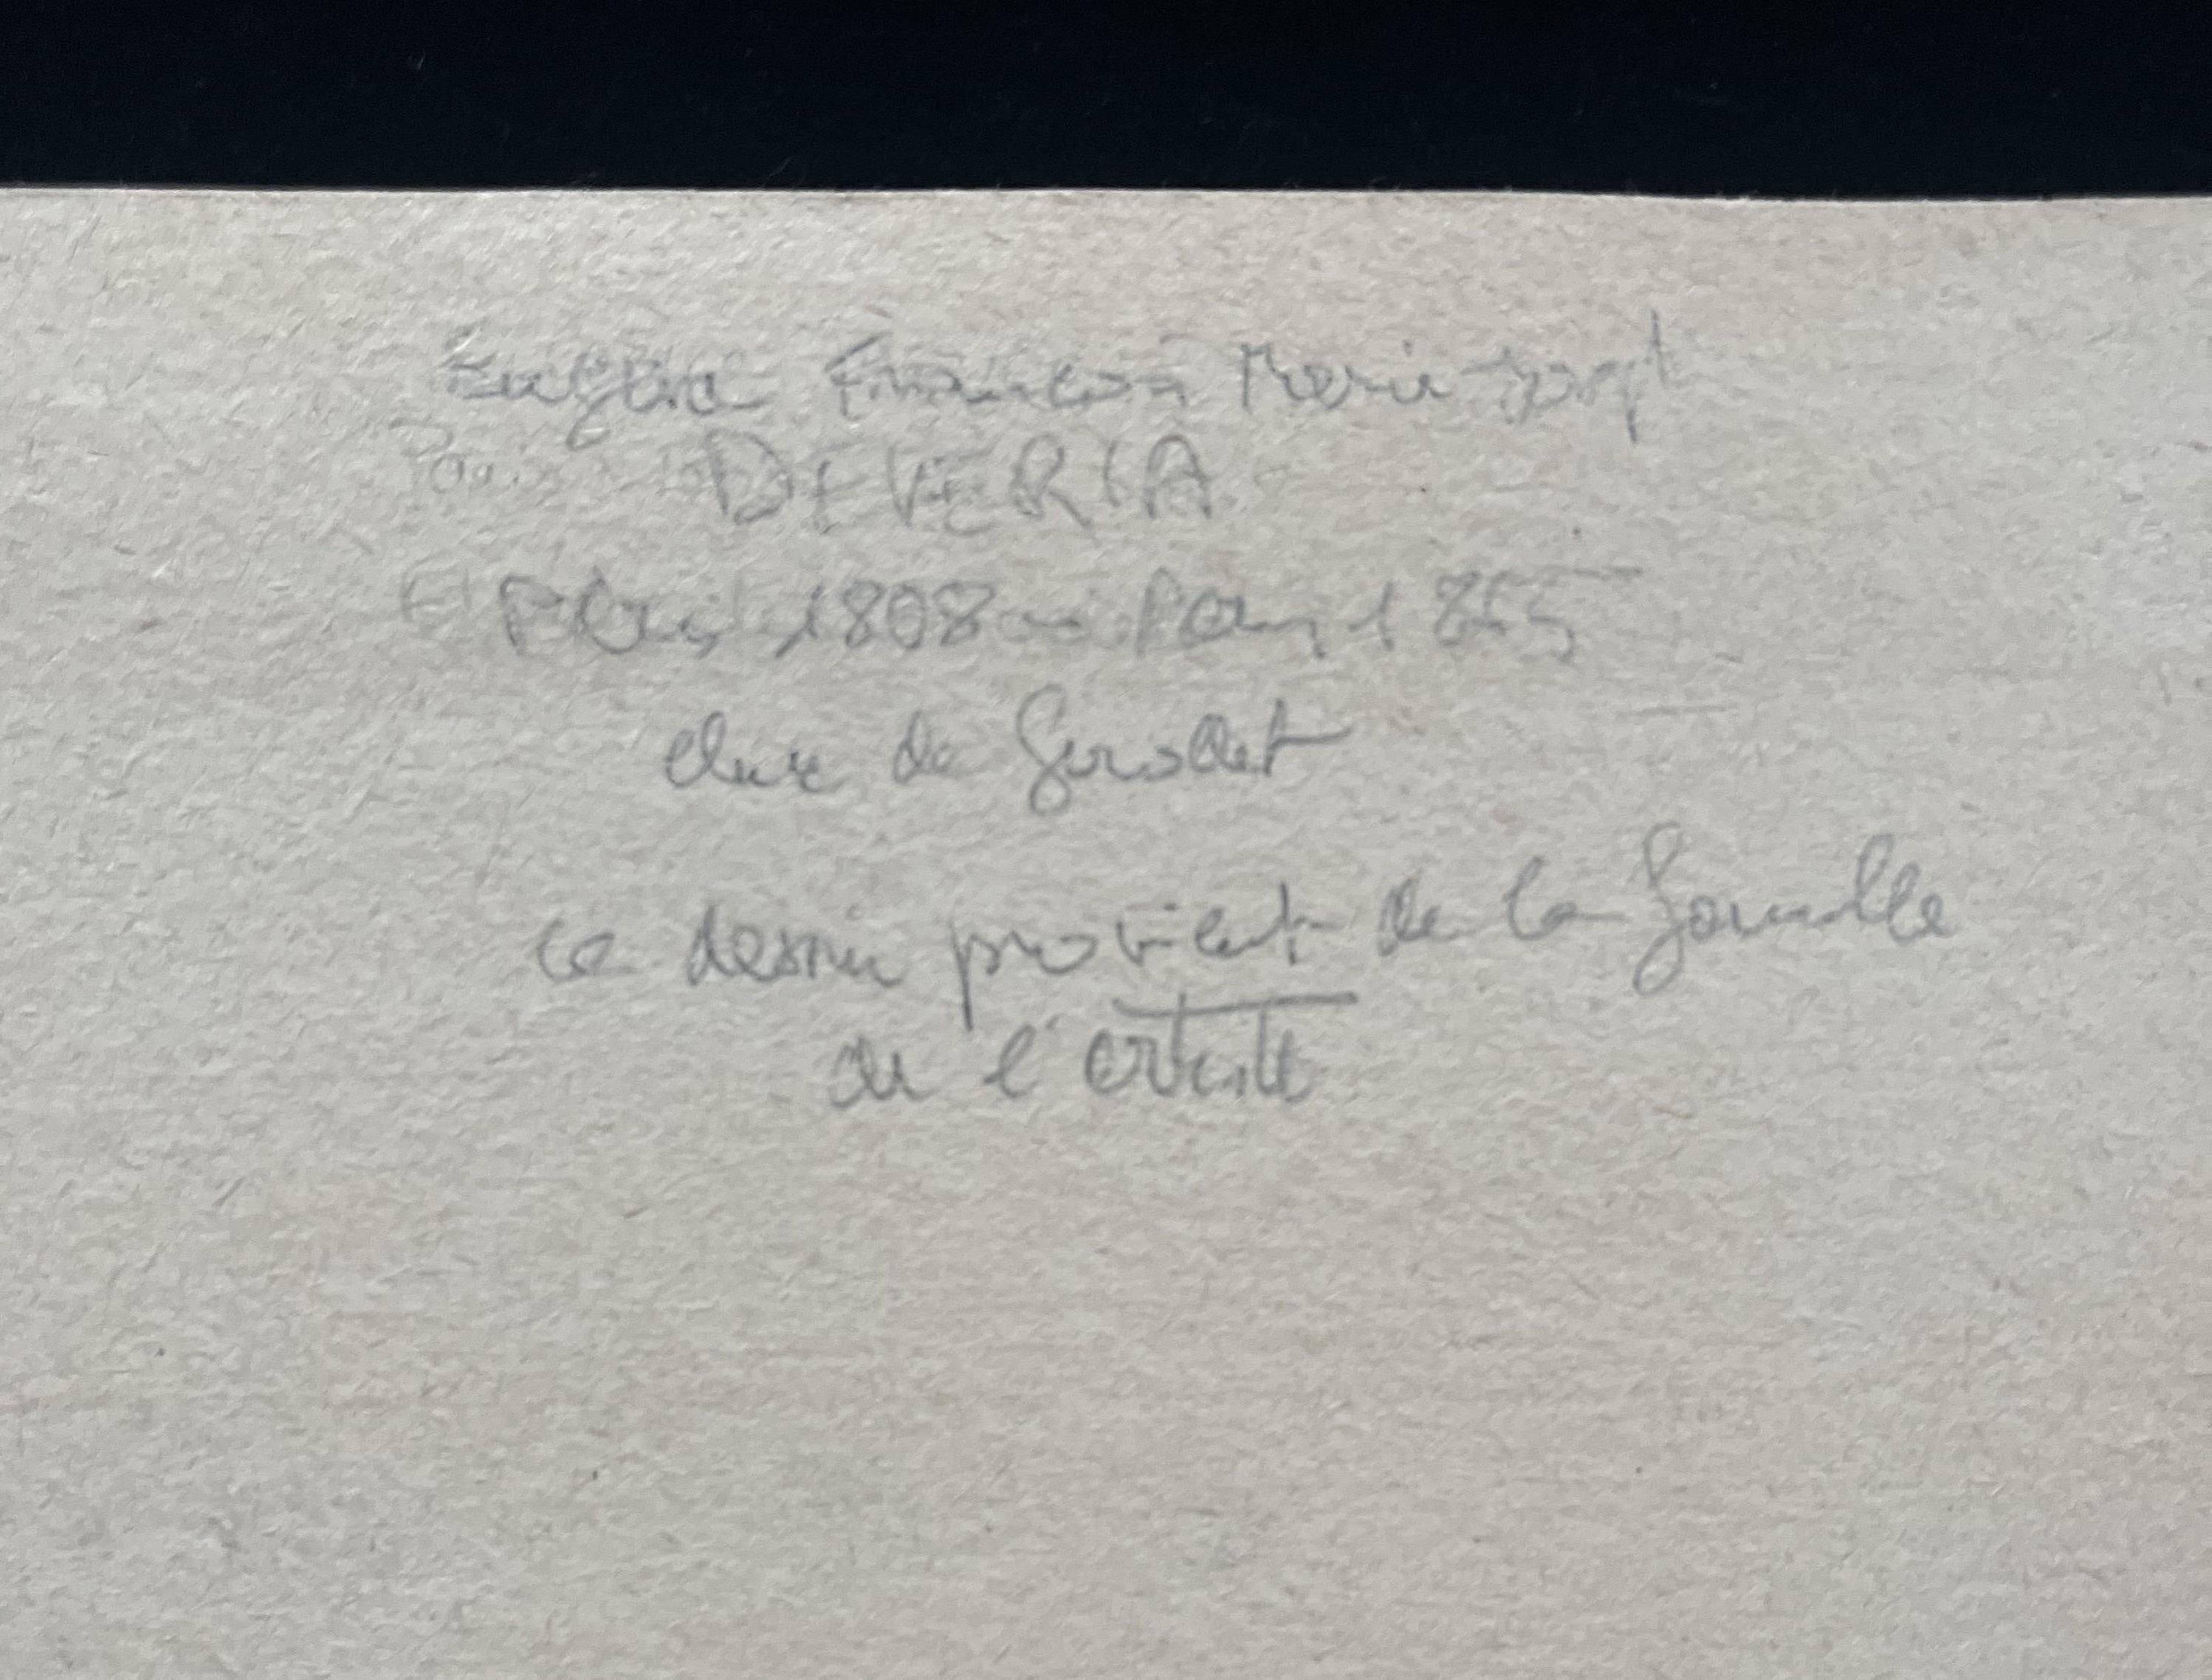 Eugène François Marie Joseph
DEVERIA
Paris 1808 - Pau 1865
élève de Girodet
ce dessin provient de la famille
de l'artiste